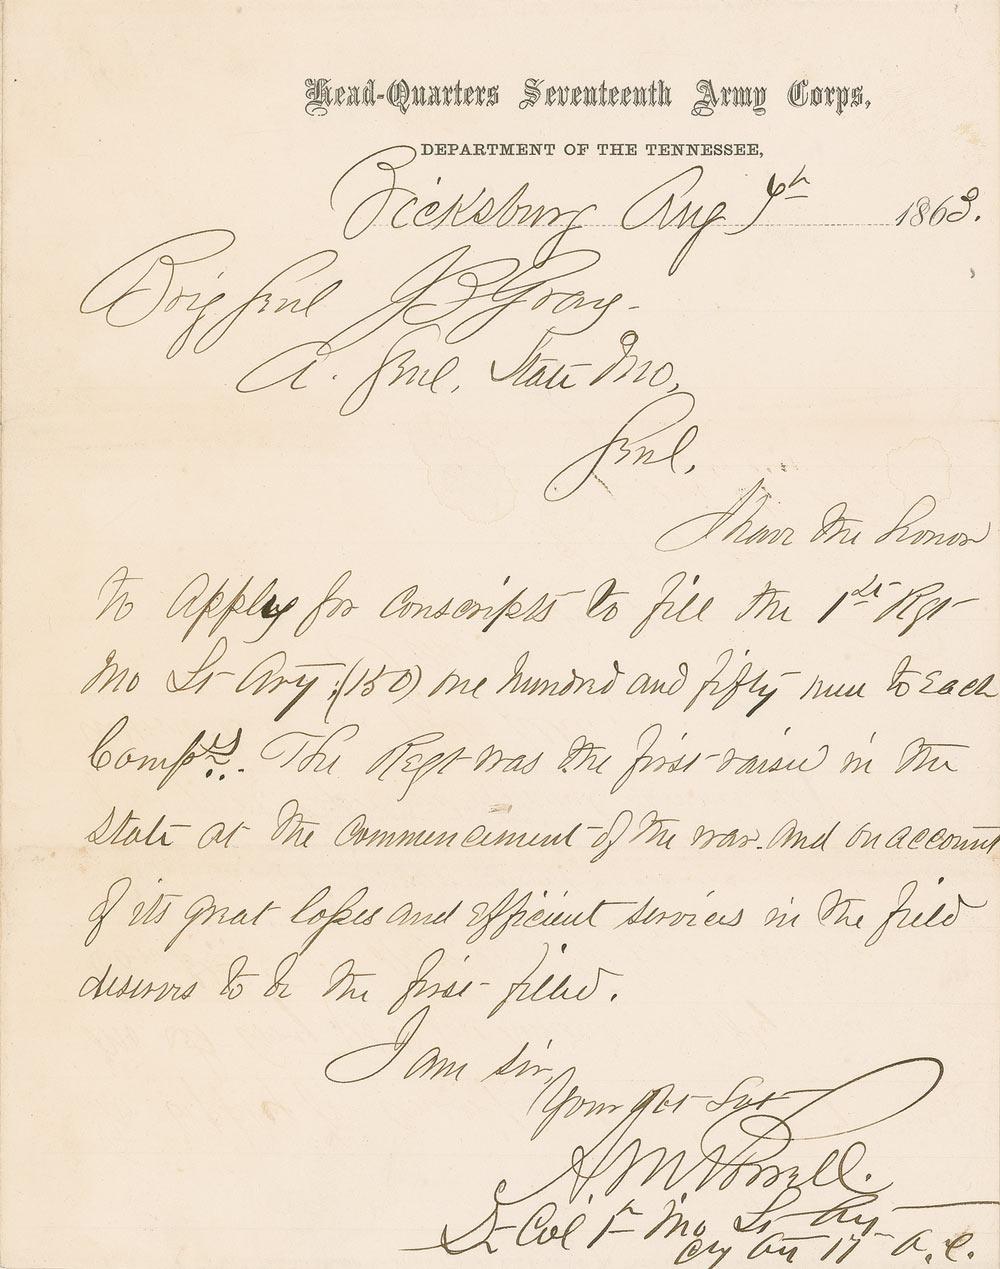 Head-Quarters Seventeenth Army Corps,
DEPARTMENT OF THE TENNESSEE,
Vicksburg Aug 4th 1863.
Brig Genl J B Gray-
A. Genl. State Mo,
Genl.
I have the honor
to apply for conscripts to fill the 1st Rgt
Mo Lt Arty :(150) one hundred and fifty men to each
The Regt was the first raised in the
State at the commencement of the war. and on account
of its great losses and efficient services in the field
deserves to be the first filled.
I am sir,
Your Obt Svt
A M Powell.
Lt Col 1st Mo Lt Arty
17 A.C.